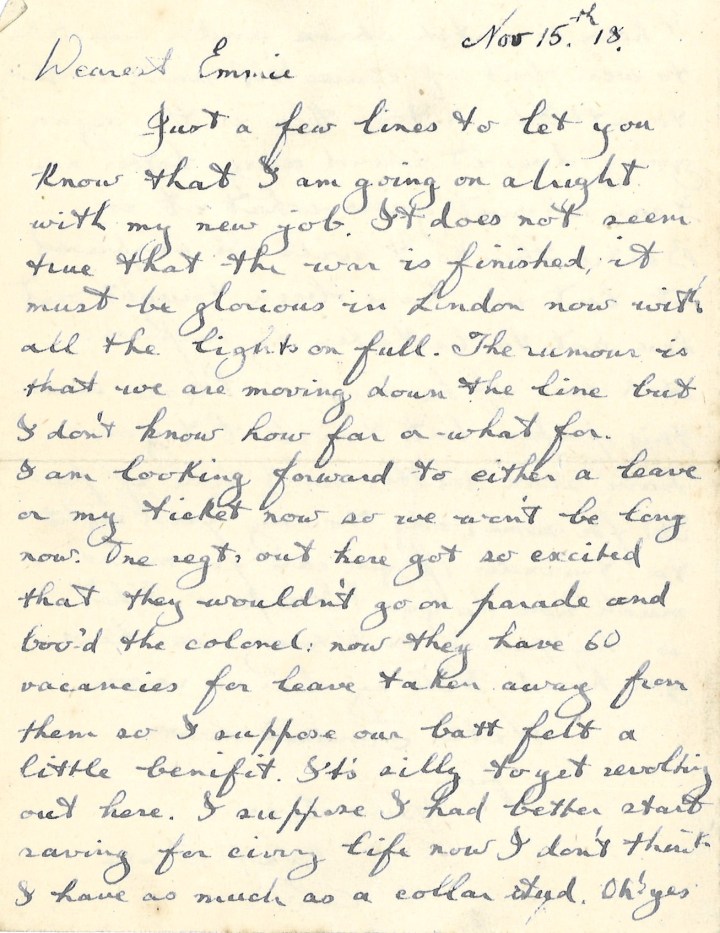 Nov 15.th 18.
Dearest Emmie
Just a few lines to let you
know that I am going on alright
with my new job. It does not seem
true that the war is finished, it
must be glorious in London now with
all the lights on full. The rumour is
that we are moving down the line but
I don't know how far or what for.
I am looking forward to either a leave
or my ticket now so we won't be long
now. One regt: out here got so excited
that they wouldn't go on parade and
boo'd the colonel: now they have 60
vacancies for leave taken away from
them so I suppose our batt felt a
little benifit. It's silly to get revolting
out here. I suppose I had better start
saving for civvy life now I don't think
I have as much as a collar stud. Oh! yes